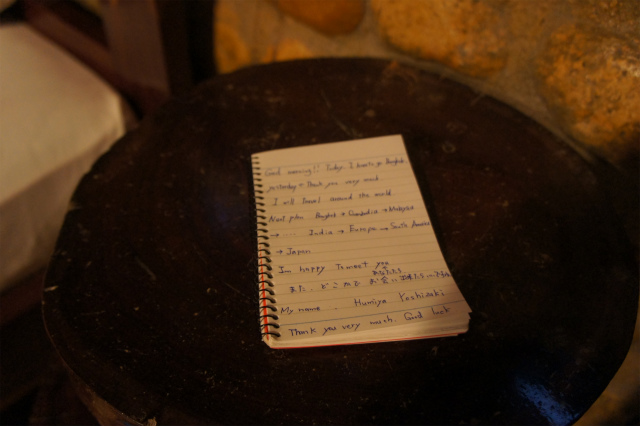 Good morning!! Today I go Bangkok.
yesterday Thank you very much
I will travel around the world.
Next plan Bangkok → Cambodia → Malaysia
→ ... India → Europe → South America
→ Japan
I'm happy To meet you
あなたたち
また、どこかで お会い
My name . Humiya Yoshizaki
Thank you very much. Good luck